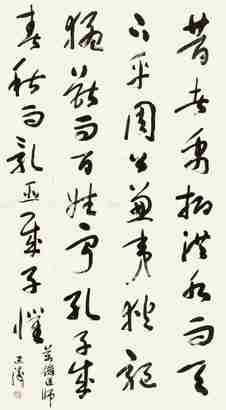 昔者禹抑洪水而天
下平周公兼夷狄驅
猛獸而百姓寧孔子成
春秋而乱臣賊子懼